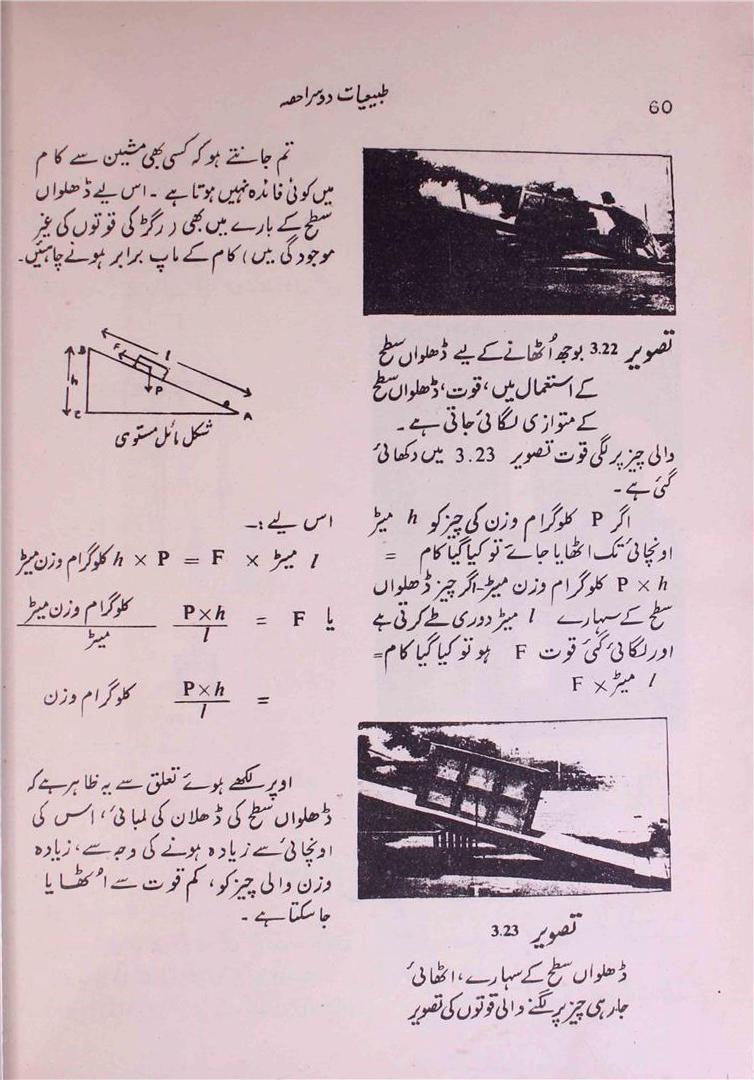 60
طبیعیات دوسرا حصہ
تصویر 3.22 بوجھ اُٹھانے کے لیے ڈھلواں سطح
کے استعمال میں، قوت، ڈھلواں سطح
کے متوازی لگائی جاتی ہے۔
والی چیز پر لگی قوت تصویر 3.23 میں دکھائی
گئی ہے۔
اگر P کلوگرام وزن کی چیز کو h میڑ
اونچائی تک اٹھایا جائے تو کیا گیا کام =
P × h کلوگرام وزن میڑ۔ اگر چیز ڈھلواں
سطح کے سہارے l میڑ دوری طے کرتی ہے
اور لگائی گئی قوت F ہو تو کیا گیا کام =
l میڑ × F
تصویر 3.23
ڈھلواں سطح کے سہارے، اٹھائی
جارہی چیز پر لگنے والی قوتوں کی تصویر
تم جانتے ہو کہ کسی بھی مشین سے کام
میں کوئی فائدہ نہیں ہوتا ہے۔ اس لیے ڈھلواں
سطح کے بارے میں بھی (رگڑ کی قوتوں کی غیر
موجودگی میں) کام کے ماپ برابر ہونے چاہئیں۔
B F l
h P
C θ A
شکل مائل مستوی
اس لیے :۔
l میڑ × F = P × h کلوگرام وزن میڑ
یا F = P×h / l کلوگرام وزن میڑ / میڑ
= P×h / l کلوگرام وزن
اوپر لکھے ہوئے تعلق سے یہ ظاہر ہے کہ
ڈھلواں سطح کی ڈھلان کی لمبائی، اس کی
اونچائی سے زیادہ ہونے کی وجہ سے، زیادہ
وزن والی چیز کو، کم قوت سے اُٹھایا
جاسکتا ہے۔